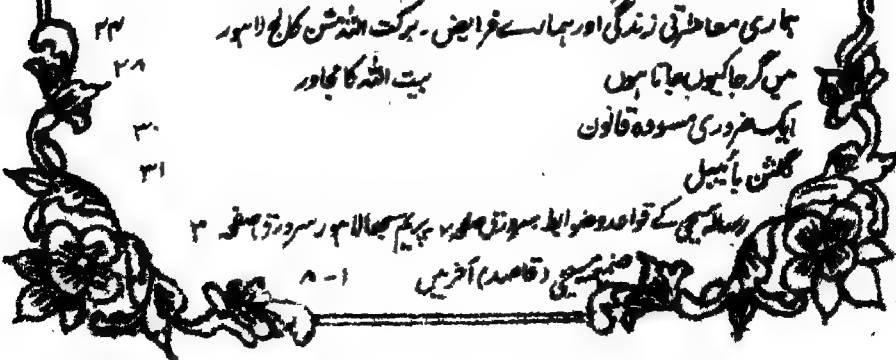 ہماری معاشرتی زندگی اور ہمارے فرایض ۔ برکت اللہ مشن کالج لاہور ۲۴
میں گرجا کیوں جاتا ہوں بیت اللہ کا مجاور ۲۸
ایک ضروری مسودہ قانون ۳۰
گلشن بائیبل ۳۱
رسالہ مسیحی کے قواعد و ضوابط سرورق صفحہ ۲ پریم سبھا لاہور سرورق صفحہ ۳
ضمیمہ مسیحی (قاصد) آخر میں ۱-۸